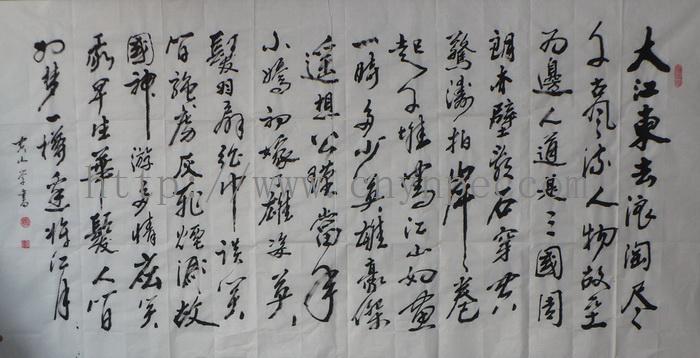 大江東去浪淘尽
千古風流人物故垒
西邊人道是三國周
郎赤壁乱石穿空
驚濤拍岸卷
起千堆雪江山如画
一時多少英雄豪傑
遥想公瑾當年
小嬌初嫁雄姿英
發羽扇綸巾談笑
間強虜灰飛煙滅故
國神游多情應笑
我早生華髮人間
如夢一樽還酹江月